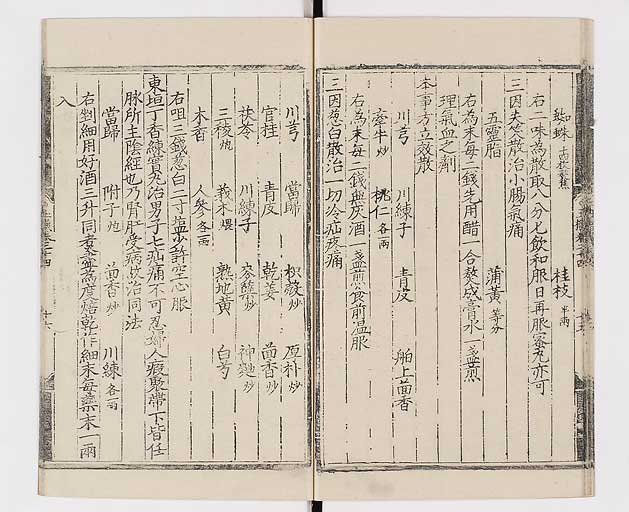 蜘蛛 十四枚熬焦 桂枝 半兩
右二味為散取八分匕飲和服日再服蜜丸亦可
三因失笑散治小腸氣痛
五靈脂 蒲黃 等分
右為末每二錢先用醋一合熬成膏水一盞煎
理氣血之劑
本事方立效散
川芎 川練子 青皮 舶上茴香
牽牛 炒 桃仁 各一兩
右為末每二錢無灰酒一盞煎食前温服
三因葱白散治一切冷疝疼痛
川芎 當歸 枳殼 炒 厚朴 炒
官桂 青皮 乾姜 茴香 炒
茯苓 川練子 麥糵 炒 神麯 炒
三稜 炮 莪朮 煨 熟地黃 白芍
木香 人參 各一兩
右㕮咀三錢葱白二寸塩少許空心服
東垣丁香練實丸治男子七疝痛不可忍婦人瘕聚帶下皆任
脉所主陰經也乃腎肝受病故治同法
當歸 附子 炮 茴香 炒 川練 各一兩
右剉細用好酒三升同煮盡為度焙乾作細末每藥末一兩
入